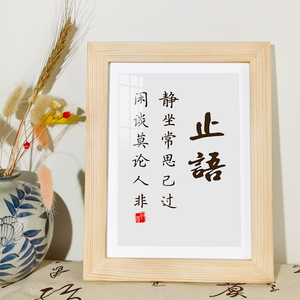 止語
静坐常思己过
闲谈莫论人非